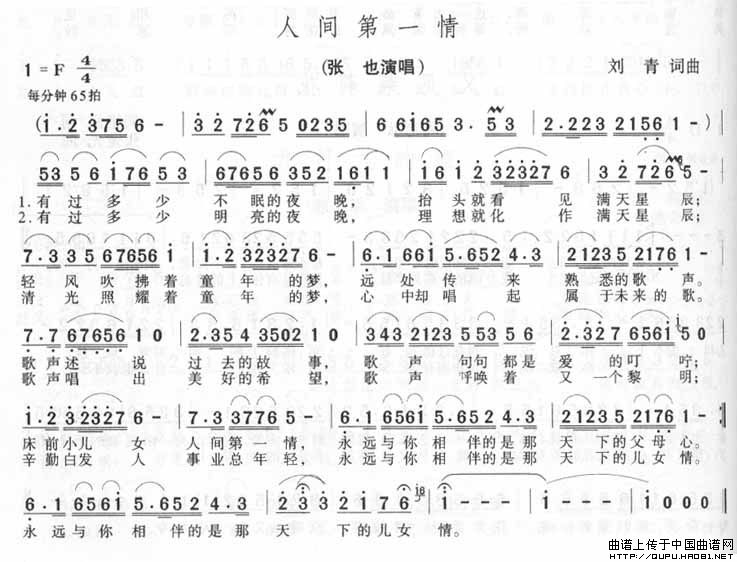 人间第一情
1=F 4/4
(张 也演唱)
刘 青 词曲
每分钟65拍
(1.2 3756 6- | 3 2 726 5 0235 | 6 6165 3. 53 | 2.223 2156 1-)
535 6176 53 | 67656 352 1611 | 1612 32327 6 | 3 2 726 5-
1.有过多少 不眠的夜晚; 抬头就看 见满天星辰;
2.有过多少 明亮的夜晚, 理想就化 作满天星辰;
7.335 67656 1 | 1.2 32327 6- | 6.1 6615.652 4.3 | 21235 2176 1-
轻风吹拂着童年的梦, 远处传来熟悉的歌声。
清光照耀着童年的梦, 心中却唱起属于未来的歌。
7.7 67656 5- | 2.354 3502 10 | 343 2123 553 56 | 2.327 6561 50
歌声述说过去的故事, 歌声句句都是爱的叮咛;
歌声唱出美好的希望, 歌声呼唤着又一个黎明;
1.2 32327 6- | 7.3 3776 5- | 6.1 6561 5.652 4.3 | 21235 2176 1- :|
床前小儿女 人间第一情, 永远与你相伴的是那天下的父母心。
辛勤白发人 事业总年轻, 永远与你相伴的是那天下的儿女情。
6.1 6561 5.652 4.3 | 233 2176 | 1--- | 1--- | 1000 ||
永远与你相伴的是那天下的儿女情。
曲谱上传于中国曲谱网
http://QUPU.HAO81.NET